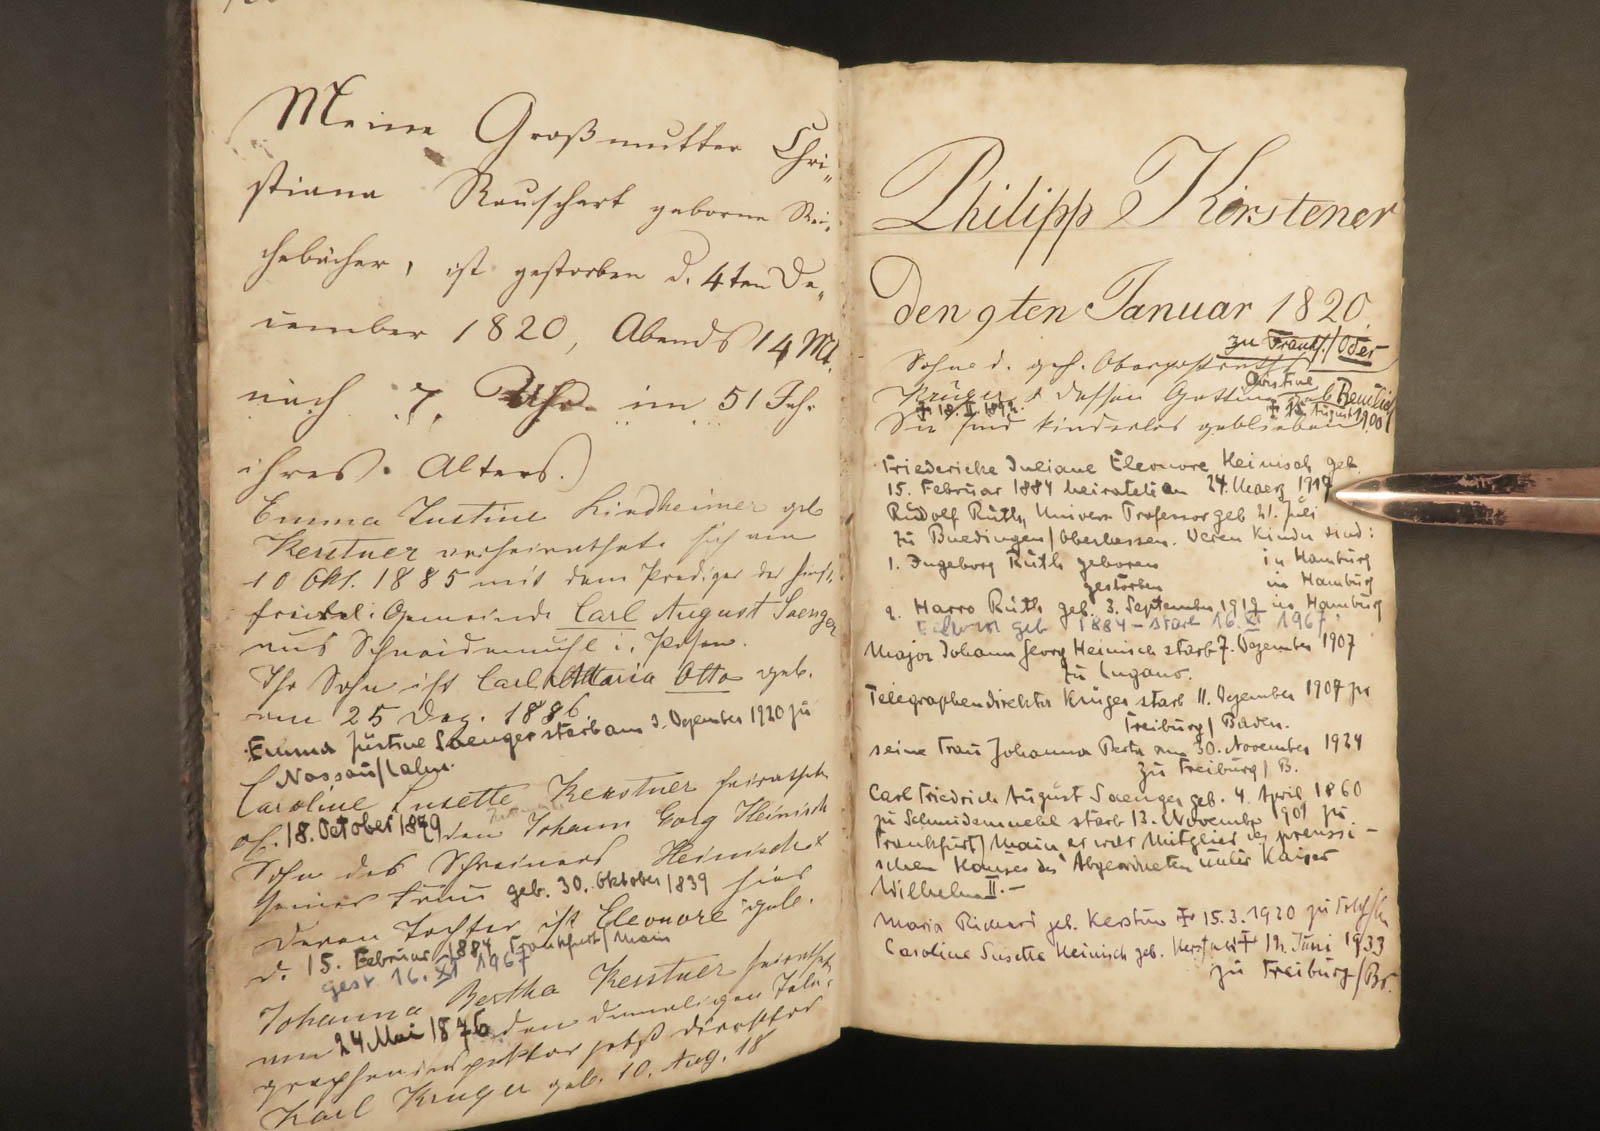 Meine Großmutter Chri-
stiana Rauschert geborne Rei-
chebücher, ist gestorben d. 4ten De-
cember 1820, Abends 14 Mt.
nach 7. Uhr im 51 Jah.
ihres Alters.
Emma Justine Lindheimer geb
Kerstner verheirathete sich am
10 Okt. 1885 mit dem Prediger der
Gemeinde Carl August Saenger
aus Schneidemühl i. Posen.
Ihr Sohn ist Carl Maria Otto geb.
am 25 Dez. 1886.
Emma Justine Saenger starb am 3. Dezember 1920 zu
Nassau/Lahn.
Caroline Susette Kerstner heirathete
18. October 1879 den Johann Georg Heinisch
Sohn des Schreiners Heinisch &
seiner Frau geb. 30. Oktober 1839 hier
Deren Tochter ist Eleonore geb.
d. 15. Februar 1884 Frankfurt/Main
gest. 16. XI 1967
Johanna Bertha Kerstner heirathete
am 24 Mai 1876 den damaligen Tele-
grapheninspektor jetzt Direktor
Karl Krüger geb. 10. Aug. 18
Philipp Kerstener
den 9ten Januar 1820
zu Frankf./Oder
Sohn d. geh. Oberpostraths
Krüger & dessen Gattin Christine geb
+ 18. II. + 15. August 1900
Sie sind kinderlos geblieben
Friedericke Juliane Eleonore Heinisch geb.
15. Februar 1884 heiratete am 24. Maerz
Rudolf Ruth, Univers. Professor geb 21. Juli
zu Buedingen/Oberhessen. Deren Kinder sind:
1. Ingeborg Ruth geboren in Hamburg
gestorben in Hamburg
2. Harro Ruth geb. 3. September 1919 in Hamburg
geb 1884 - starb 16. XI 1967.
Major Johann Georg Heinisch starb 7. Dezember 1907
zu Lugano.
Telegraphendirektor Krüger starb 11. Dezember 1907 zu
Freiburg/Baden.
seine Frau Johanna Berta am 30. November 1924
zu Freiburg/B.
Carl Friedrich August Saenger geb. 4. April 1860
zu Schneidemuehl starb 13. November 1901 zu
Frankfurt/Main er war Mitglied des preussi-
schen Hauses der Abgeordneten unter Kaiser
Wilhelm II.-
Maria geb. Kerstner + 15.3.1920 zu
Caroline Susette Heinisch geb. Kerstner + Juni 1933
zu Freiburg/Br.